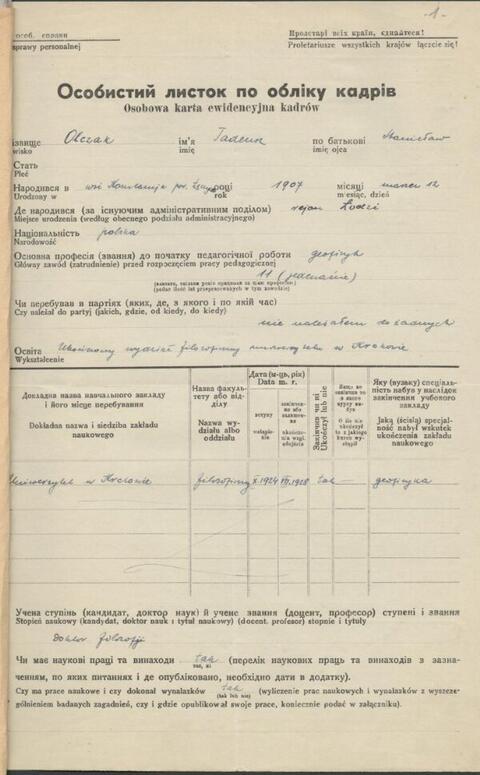 -1-
особ. справи
sprawy personalnej
Пролетарі всіх країн, єднайтеся!
Proletariusze wszystkich krajów łączcie się!
Особистий листок по обліку кадрів
Osobowa karta ewidencyjna kadrów
ізвище Olczak ім'я Tadeusz по батькові Stanisław
wisko imię imię ojca
Стать
Płeć
Народився в wsi pow. році 1907 місяці marzec 12
Urodzony w rok miesiąc, dzień
Де народився (за існуючим адміністративним поділом) rejon Łódzki
Miejsce urodzenia (według obecnego podziału administracyjnego)
Національність polska
Narodowość
Основна професія (звання) до початку педагогічної роботи geofizyk
Główny zawód (zatrudnienie) przed rozpoczęciem pracy pedagogicznej
11 (jedenaście)
(podać ilość lat przepracowanych w tym zawodzie)
Чи перебував в партіях (яких, де, з якого і по якій час)
Czy należał do partyj (jakich, gdzie, od kiedy, do kiedy)
nie należałem do żadnych
Освіта Ukończony wydział filozoficzny uniwersytetu w Krakowie
Wykształcenie
Докладна назва навчального закладу і його місце перебування
Dokładna nazwa i siedziba zakładu naukowego
Назва факультету або відділу
Nazwa wydziału albo oddziału
Дата (м-ць, рік)
Data m. r.
вступу
wstąpienia
Закінчив чи ні
Ukończył lub nie
Яку (вузьку) спеціальність набув у наслідок закінчення учбового закладу
Jaką (ścisłą) specjalność nabył wskutek ukończenia zakładu naukowego
Uniwersytet w Krakowie filozoficzny X.1924 VII.1928 tak — geofizyka
Учена ступінь (кандидат, доктор наук) й учене звання (доцент, професор) ступені і звання
Stopień naukowy (kandydat, doktor nauk i tytuł naukowy) (docent, profesor) stopnie i tytuły
doktor filozofji
Чи має наукові праці та винаходи tak (перелік наукових праць та винаходів з зазна-
так, ні
ченням, по яких питаннях і де опубліковано, необхідно дати в додатку).
Czy ma prace naukowe i czy dokonał wynalazków tak (wyliczenie prac naukowych i wynalazków z wyszcze-
(tak lub nie)
gólnieniem badanych zagadnień, czy i gdzie opublikował swoje prace, koniecznie podać w załączniku).